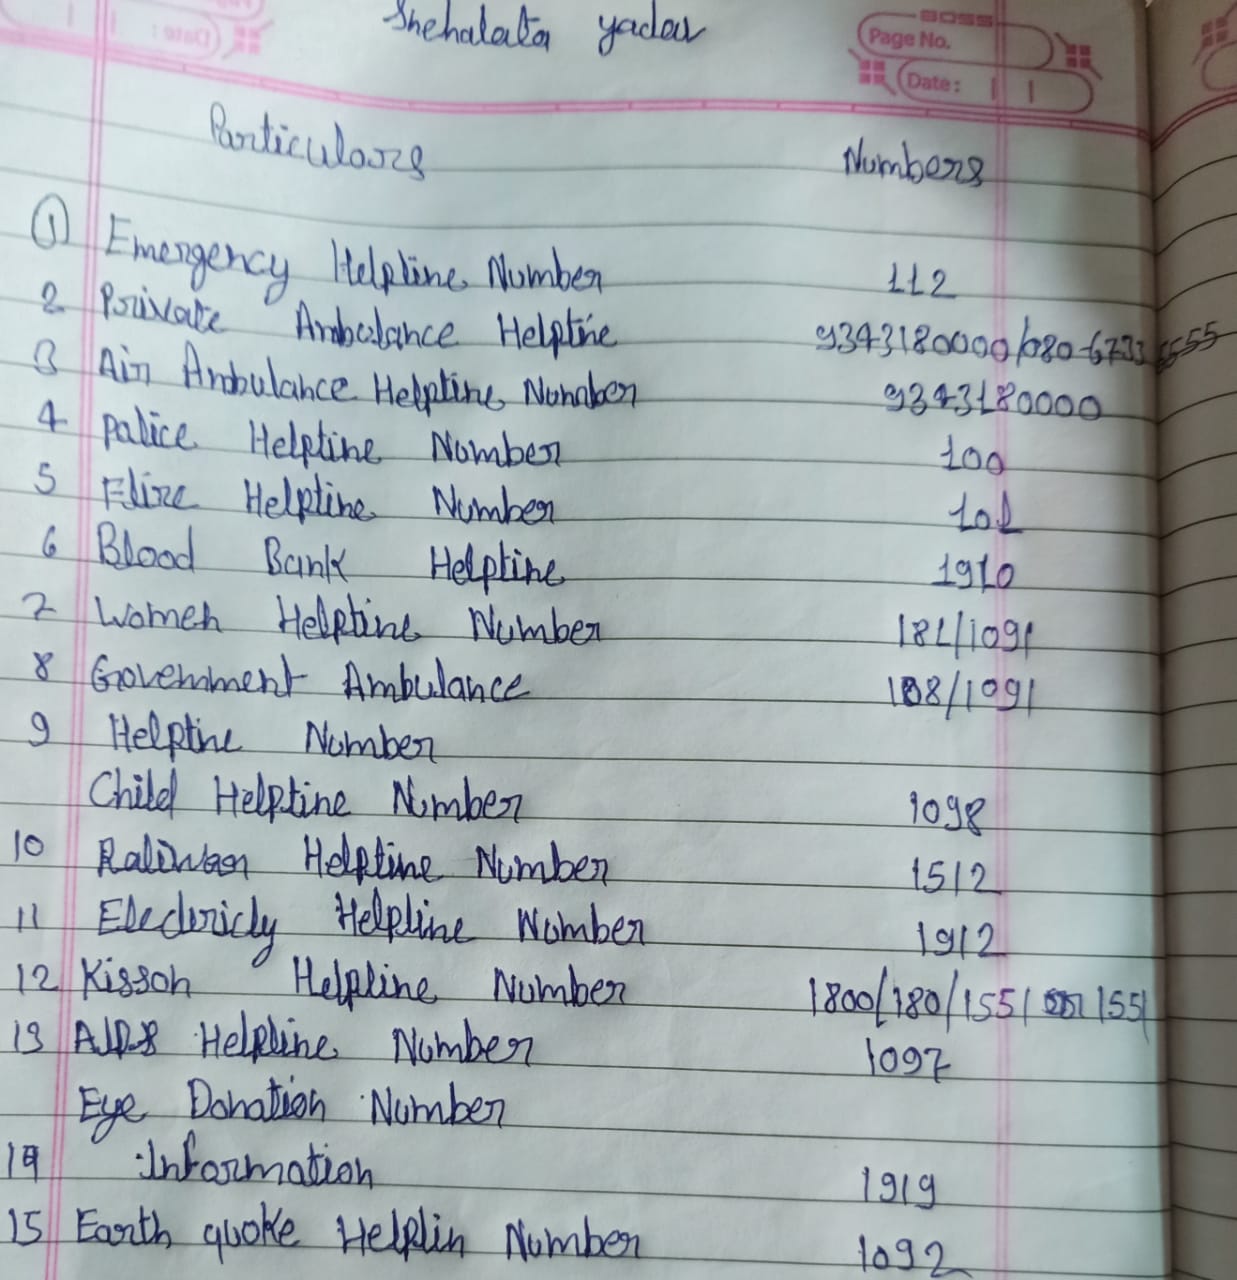 Snehalata yadav
BOSS
Page No.
Date:
Particulars Numbers
① Emergency Helpline Number 112
2 Private Ambulance Helpline 9343180000/080-6733 5555
3 Air Ambulance Helpline Number 9343180000
4 Palice Helpline Number 100
5 Flire Helpline Number 101
6 Blood Bank Helpline 1910
7 Women Helpline Number 181/1091
8 Government Ambulance 108/1091
9 Helpline Number
Child Helpline Number 1098
10 Helpline Number 1512
11 Helpline Number 1912
12 Kisson Helpline Number 1800/180/155/ 155/
13 AIDS Helpline Number 1097
Eye Donation Number
14 Information 1919
15 Earth quoke Helplin Number 1092